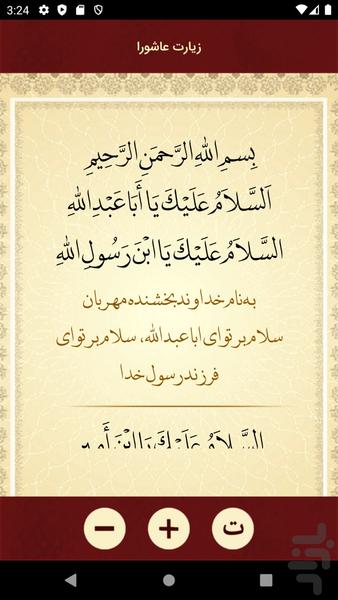 3:24
زیارت عاشورا
بِسمِ اللهِ الرَّحمَنِ الرَّحِیمِ
اَلسَّلاَمُ عَلَیْكَ یَا أَبَا عَبْدِ اللهِ
السَّلاَمُ عَلَیْكَ یَا ابْنَ رَسُولِ اللهِ
به نام خداوند بخشنده مهربان
سلام بر تو ای ابا عبدالله، سلام بر تو ای
فرزند رسول خدا
السَّلاَمُ عَلَیْكَ یَا ابْنَ أَمِیرِ
ت
بازار